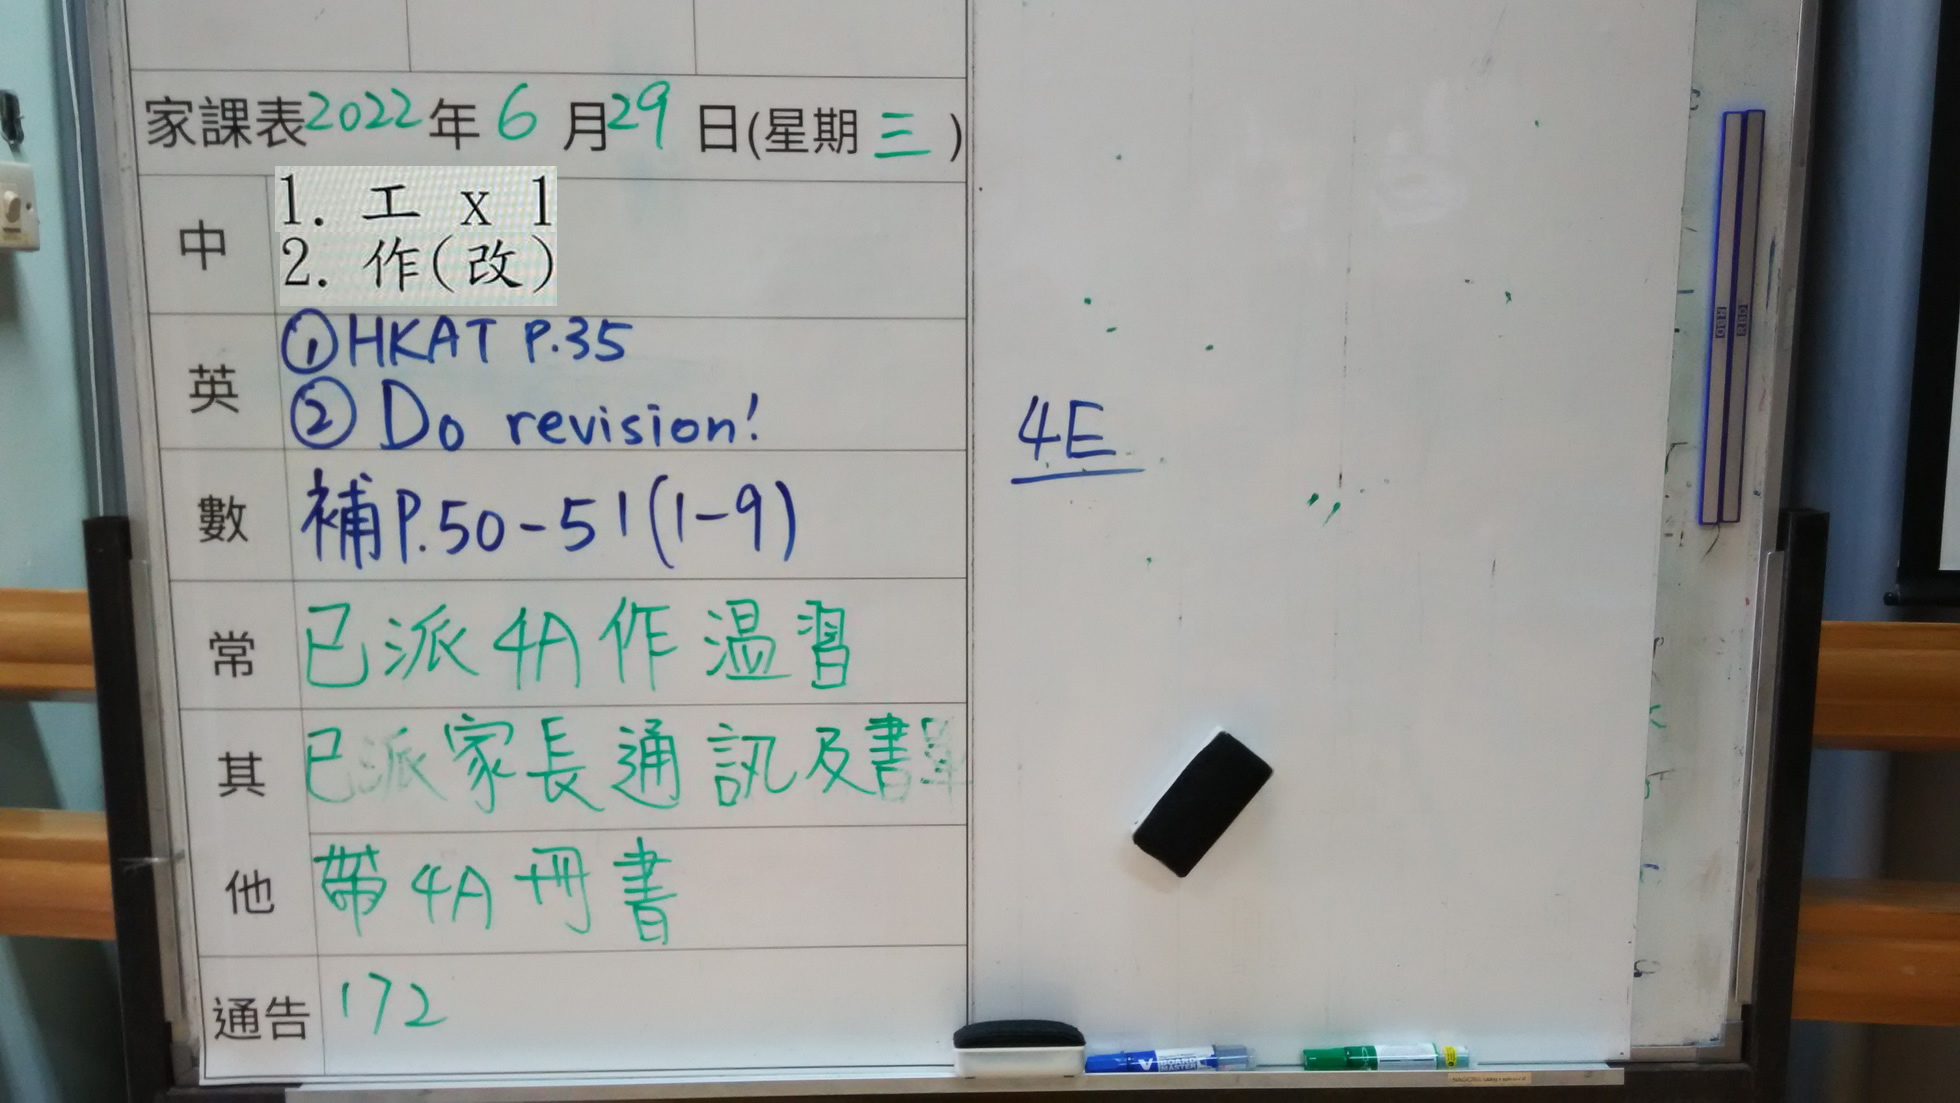 家課表2022年6月29日(星期三)
中
1. 工 x 1
2. 作(改)
英
①HKAT P.35
② Do revision!
數
補P.50-51(1-9)
常
已派4A作温習
其他
已派家長通訊及書單
帶4A冊書
通告
172
4E
V BOARD MASTER